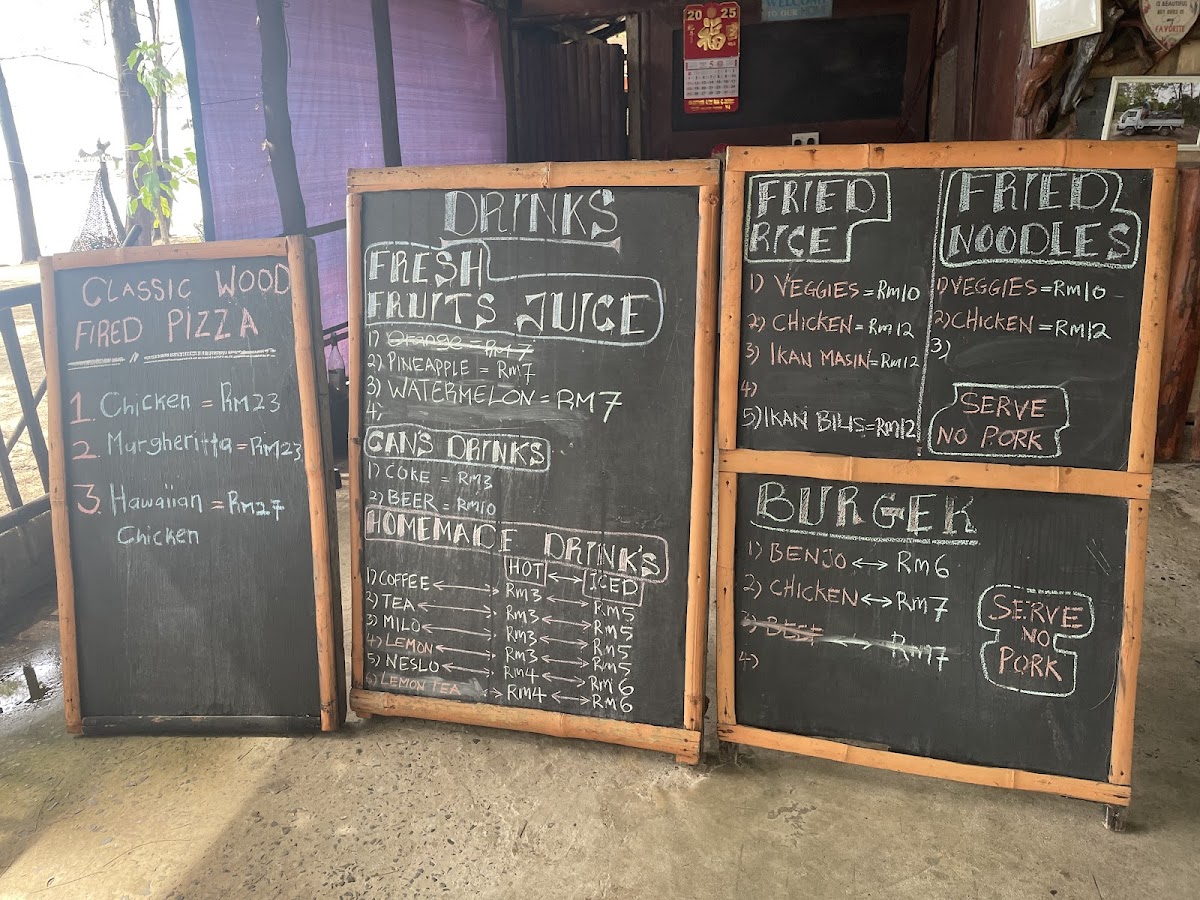 CLASSIC WOOD
FIRED PIZZA
1. Chicken = RM23
2. Margheritta = RM23
3. Hawaiian = RM27
Chicken
DRINKS
FRESH
FRUITS JUICE
1) Orange = RM 7
2) PINEAPPLE = RM7
3) WATERMELON = RM7
4)
CANS DRINKS
1) COKE = RM3
2) BEER = RM10
HOMEMADE DRINK'S
HOT ↔ ICED
1) COFFEE ↔ RM3 ↔ RM5
2) TEA ↔ RM3 ↔ RM5
3) MILO ↔ RM3 ↔ RM5
4) LEMON ↔ RM3 ↔ RM5
5) NESLO ↔ RM4 ↔ RM6
6) LEMON TEA ↔ RM4 ↔ RM6
FRIED
RICE
1) VEGGIES = RM10
2) CHICKEN = RM12
3) IKAN MASIN = RM12
4)
5) IKAN BILIS = RM12
FRIED
NOODLES
1) VEGGIES = RM10
2) CHICKEN = RM12
3)
SERVE
NO PORK
BURGER
1) BENJO ↔ RM6
2) CHICKEN ↔ RM7
3) BEEF ↔ RM7
4)
SERVE
NO
PORK
2025
福
5
WELCOME
FAVORITE